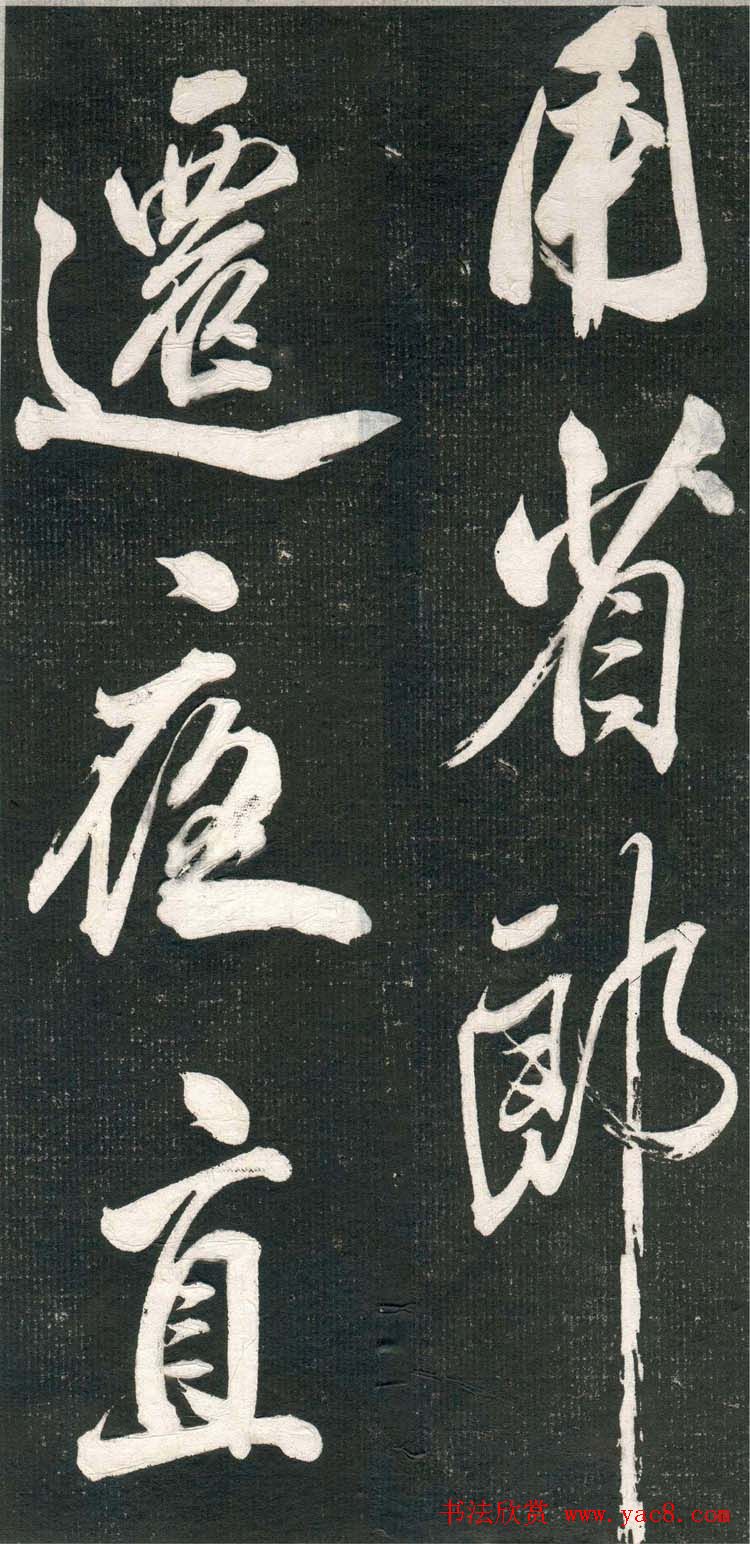 用省郎
遷夜直
书法欣赏 www.yac8.com